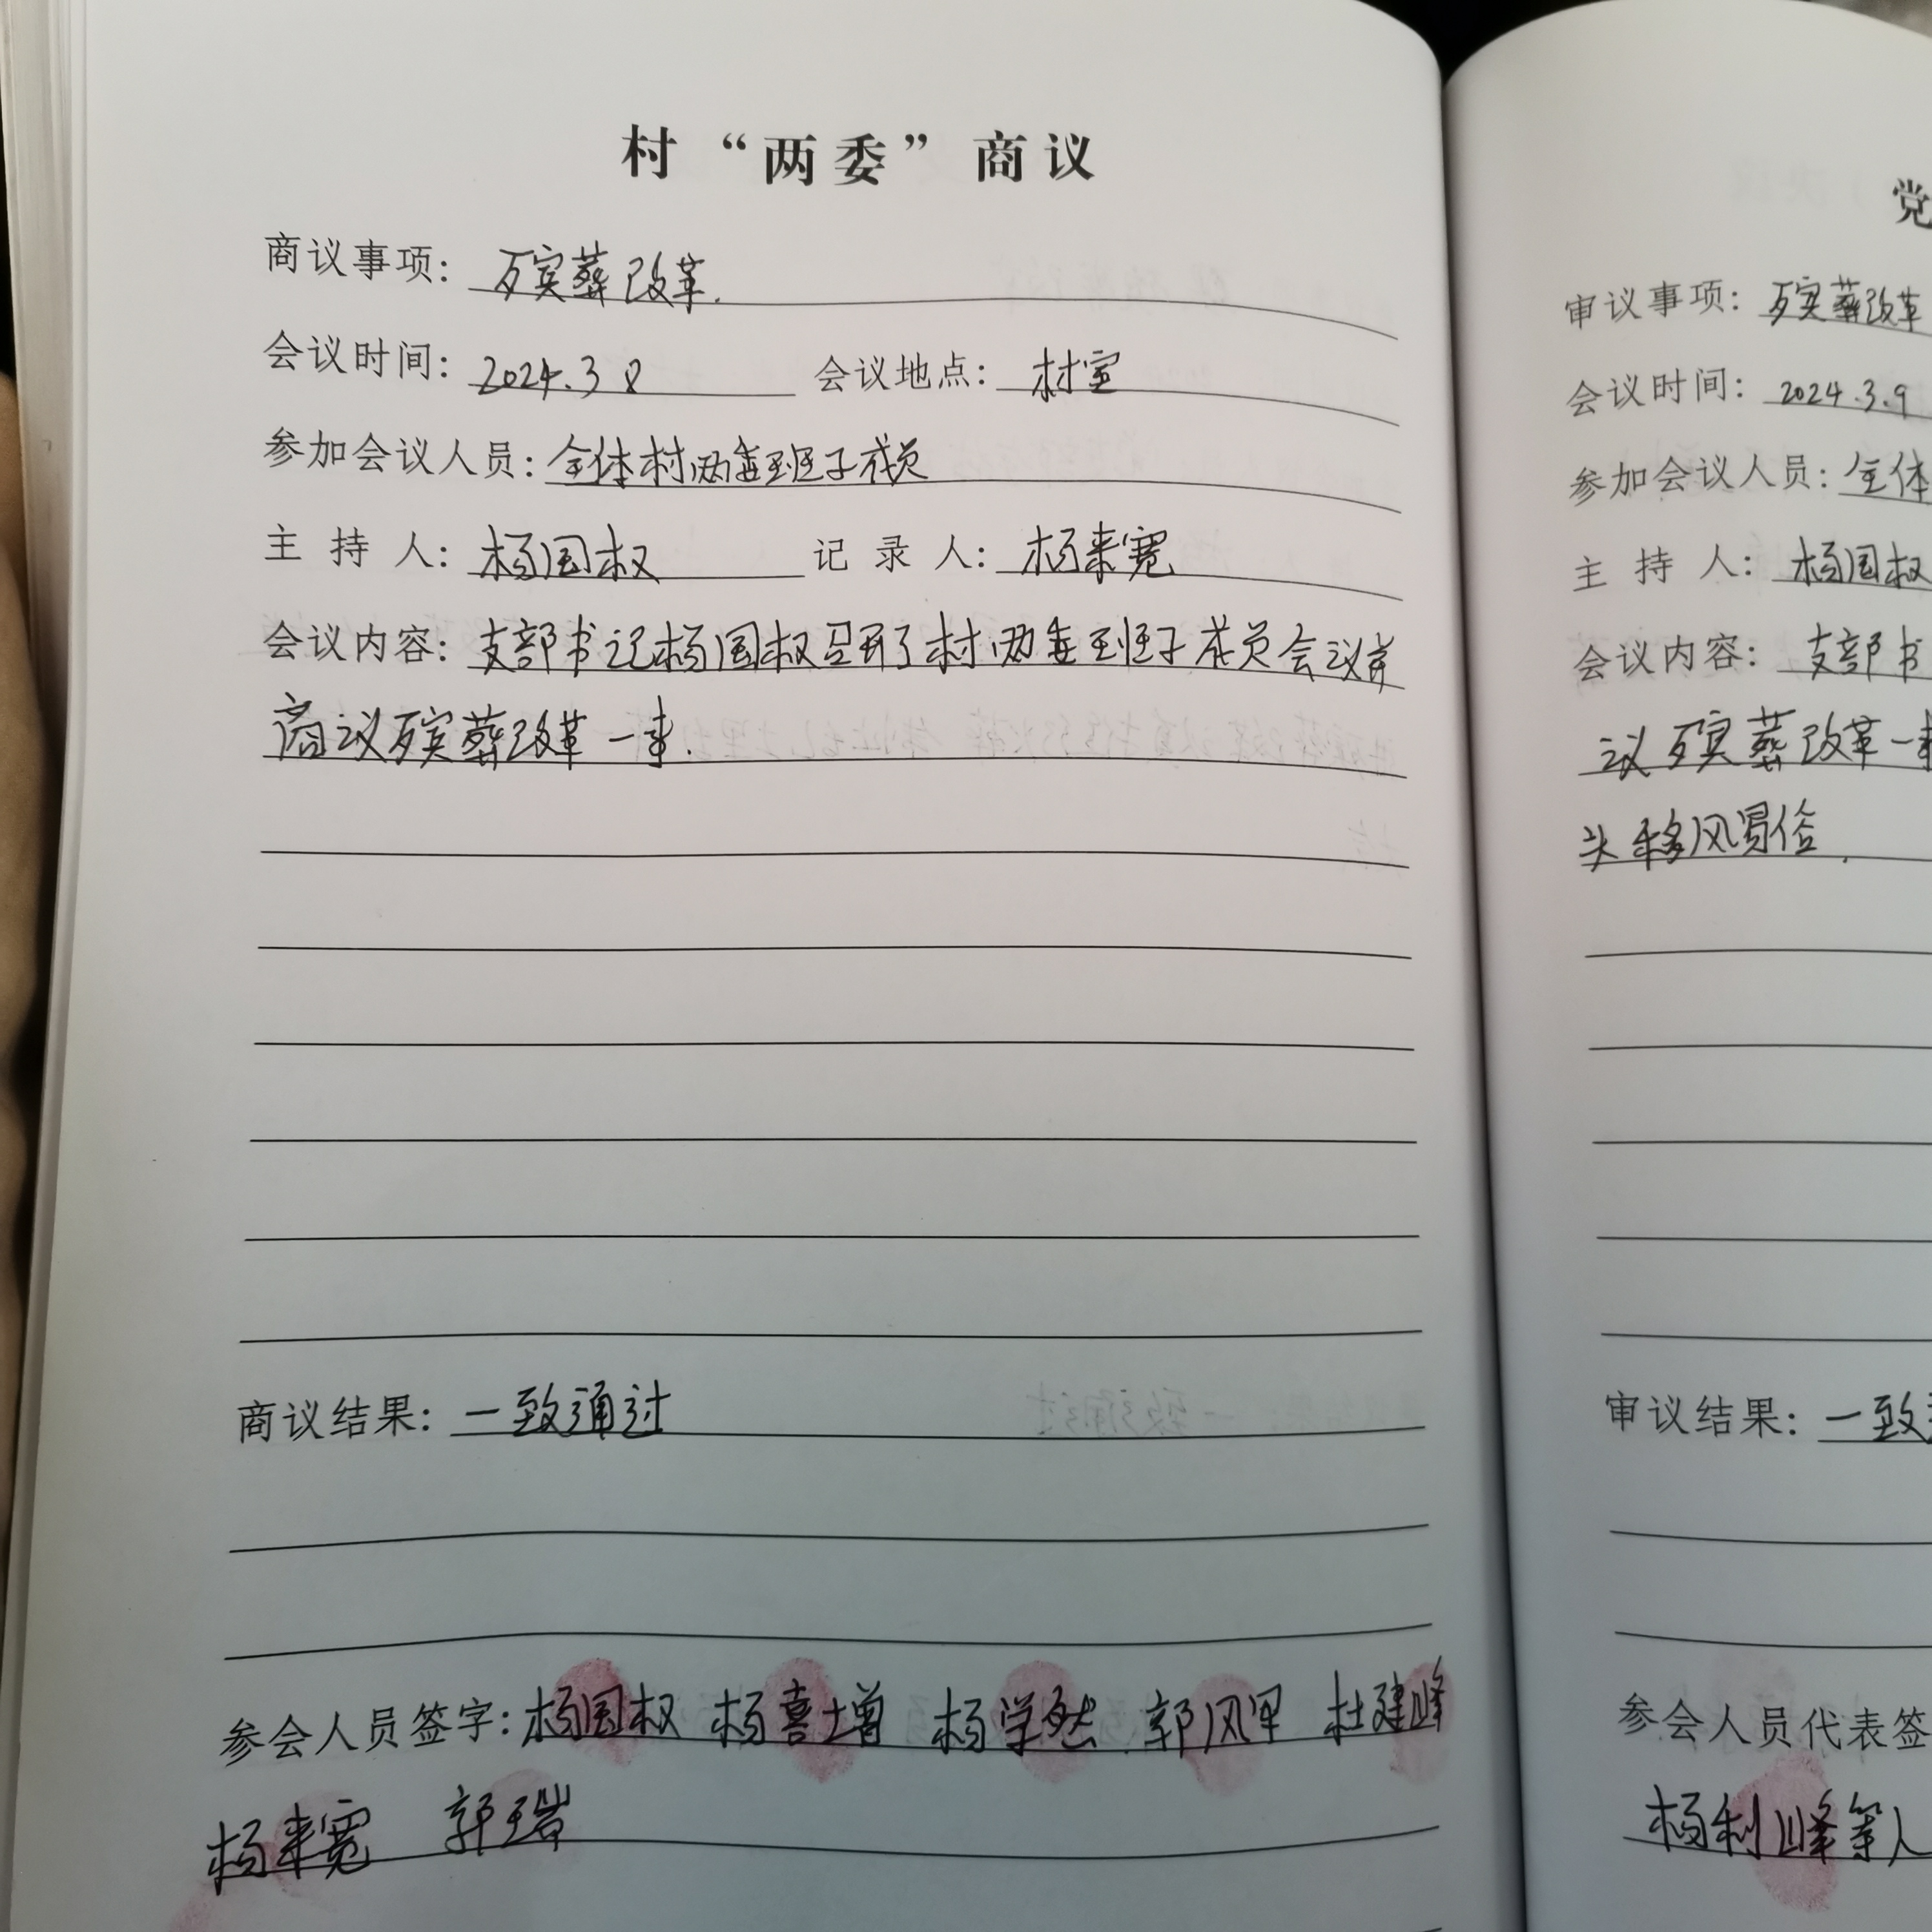 村“两委”商议
商议事项：殡葬改革.
会议时间：2024.3 8 会议地点：村室
参加会议人员：全体村两委班子成员
主 持 人：杨国权 记 录 人：杨来宽
会议内容：支部书记杨国权召开了村两委班子成员会议并
商议殡葬改革一事.
商议结果：一致通过
参会人员签字：杨国权 杨喜增 杨学然 郭风军 杜建峰
杨来宽 郭瑞
党
审议事项：殡葬改革
会议时间：2024.3.9
参加会议人员：全体
主 持 人：杨国权
会议内容：支部书
议殡葬改革一事
头移风易俗.
审议结果：一致
参会人员代表签
杨利峰等人